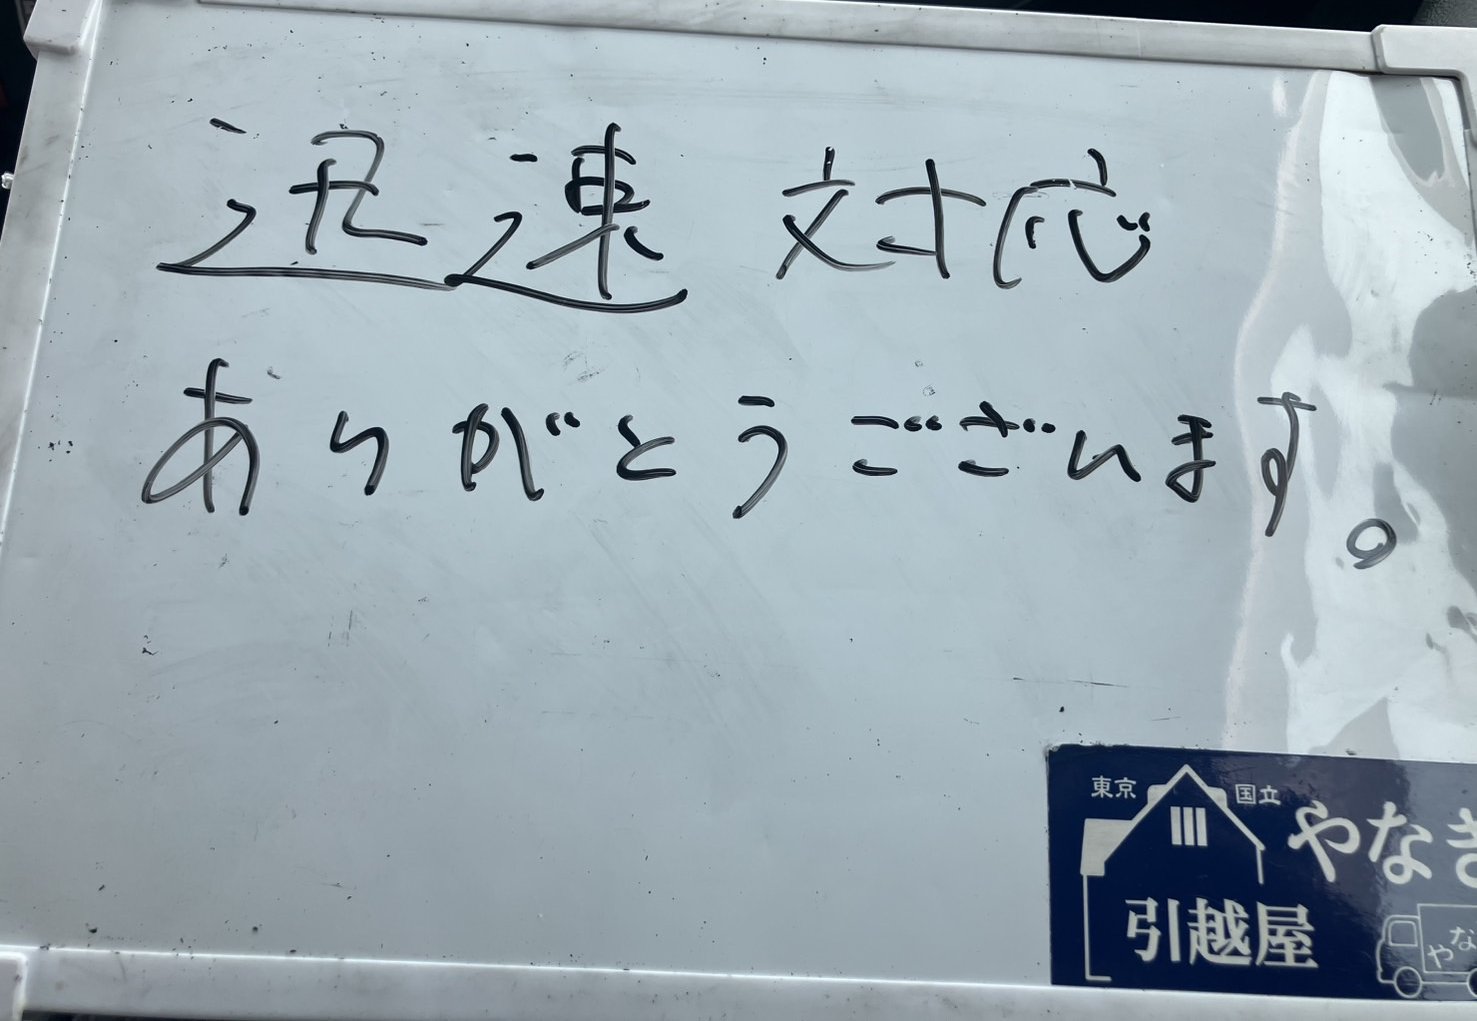 迅速 対応
ありがとうございます。
東京 国立
やなき
引越屋
やな